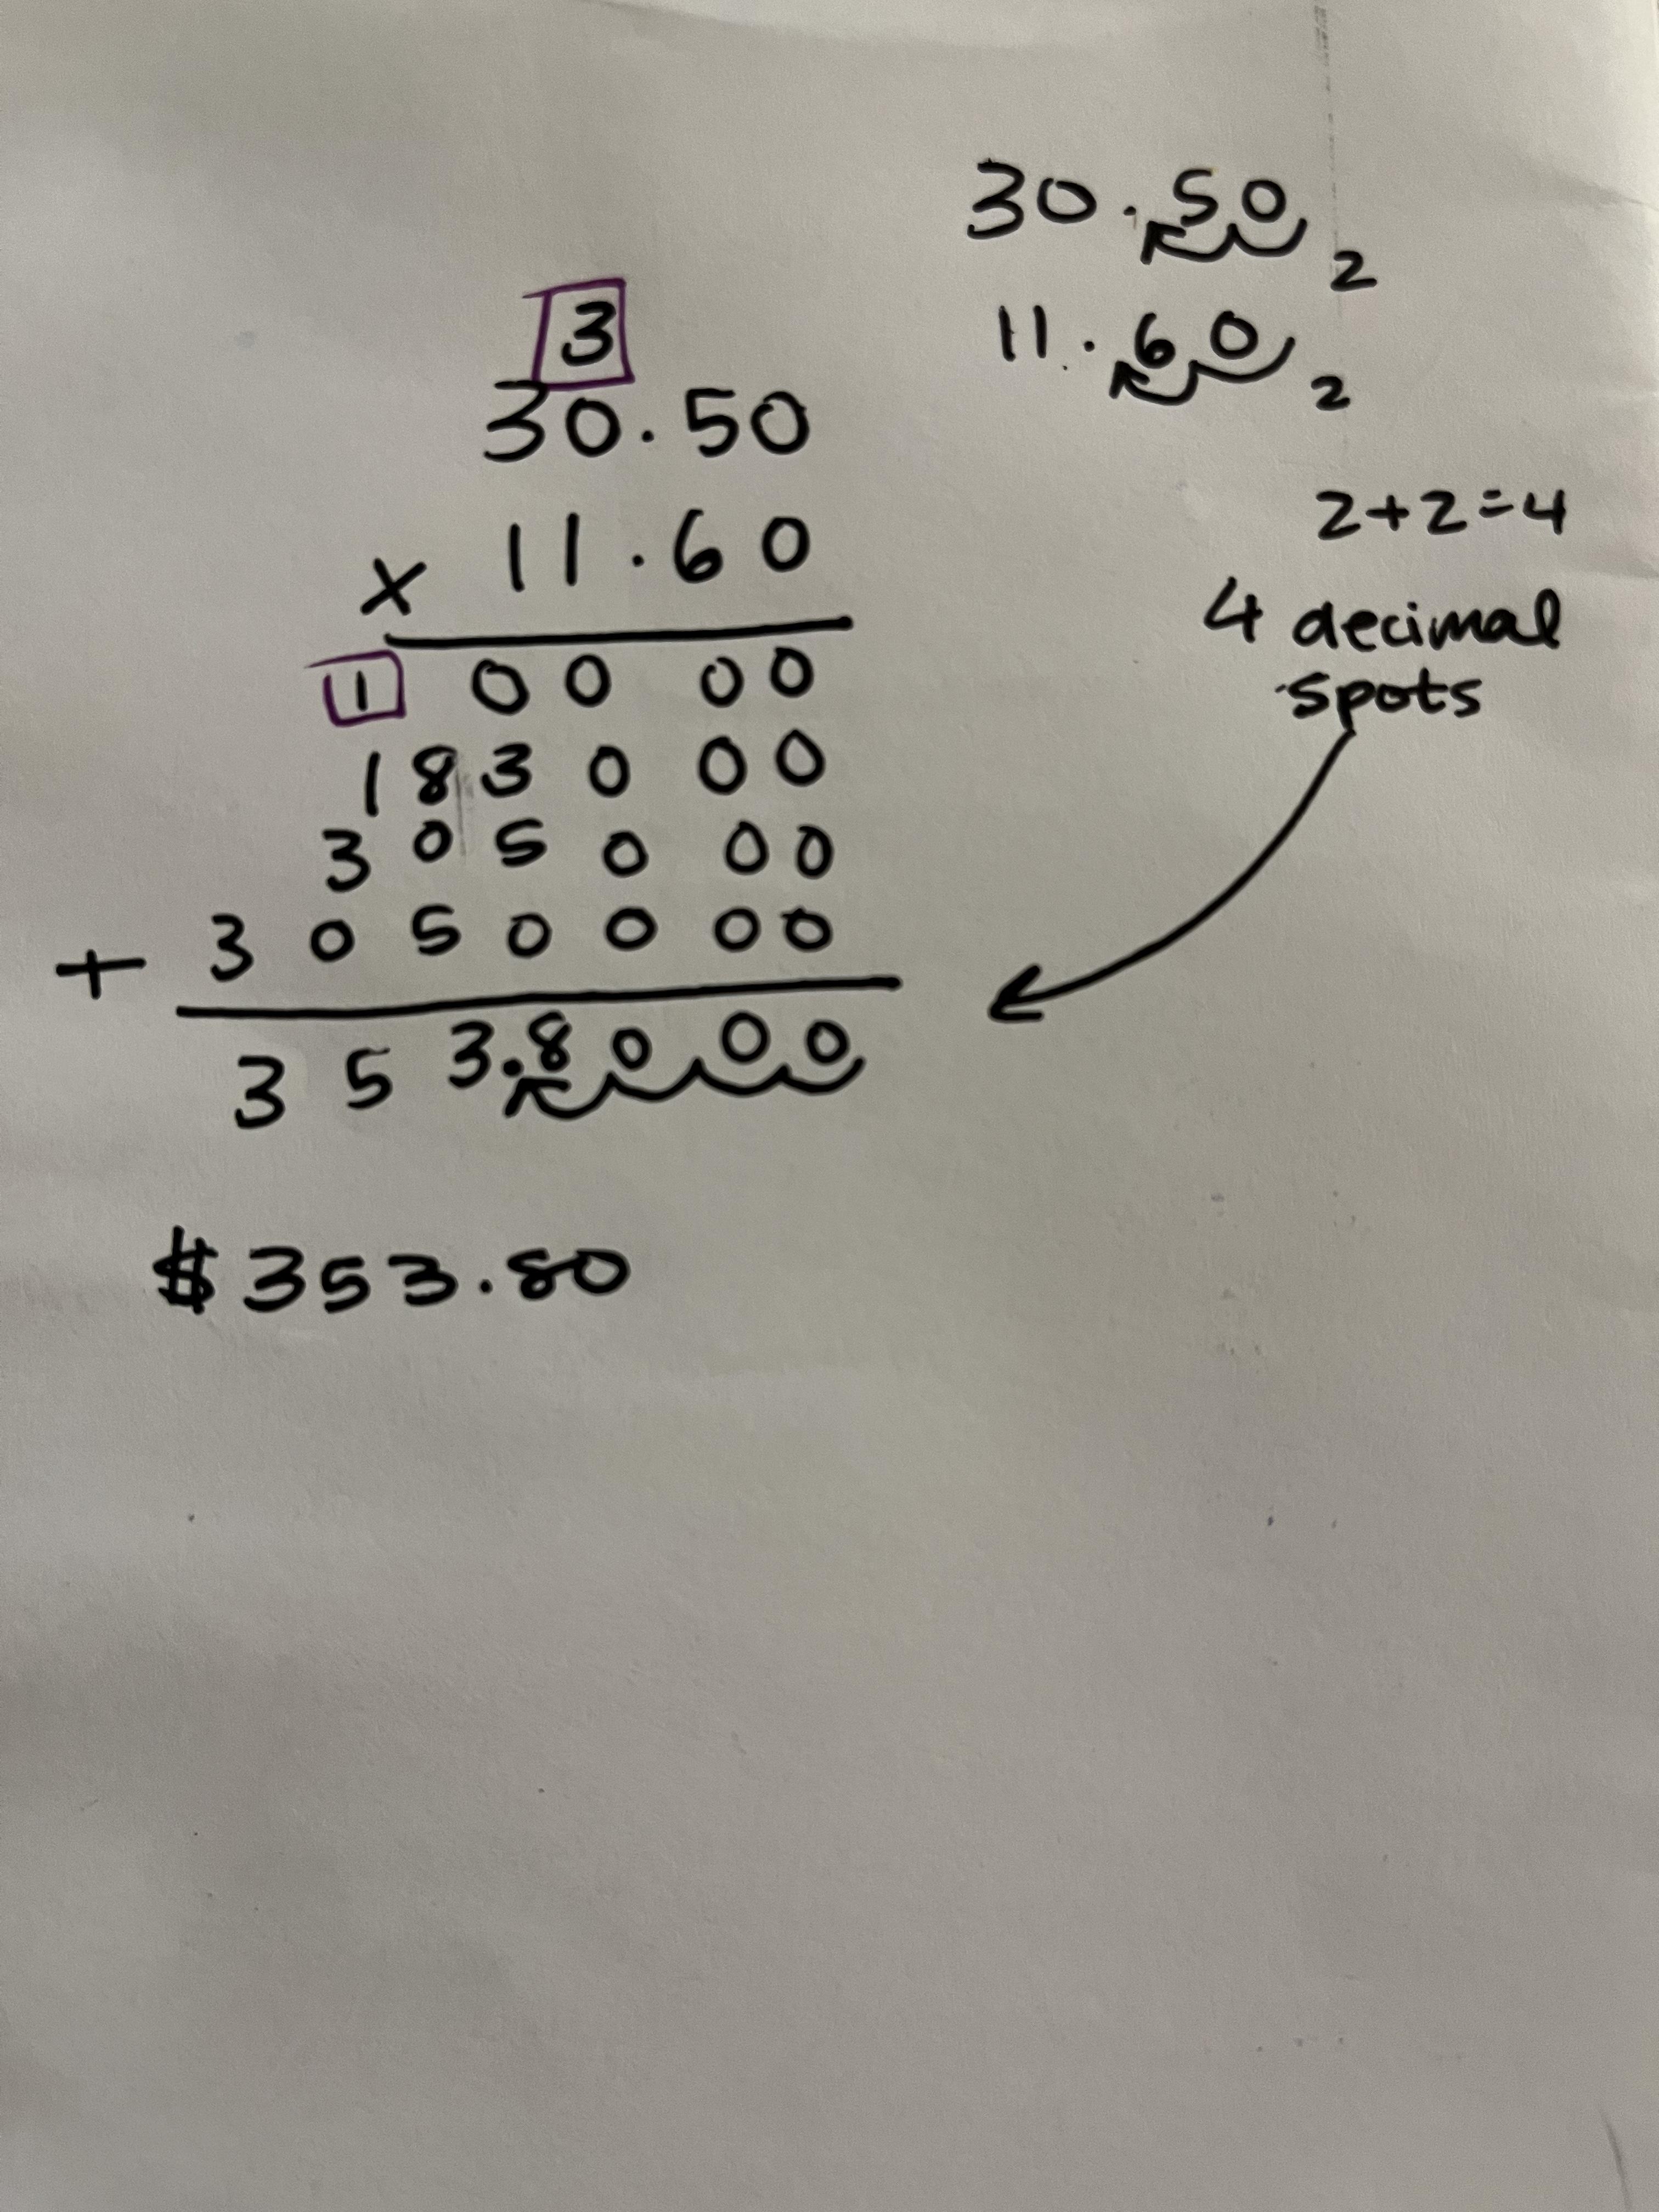 3
30.50
x 11.60
1 0 0 0 0
1 8 3 0 0 0
3 0 5 0 0 0
+ 3 0 5 0 0 0 0
3 5 3.8 0 0 0
$353.80
30.50 2
11.60 2
2+2=4
4 decimal
spots